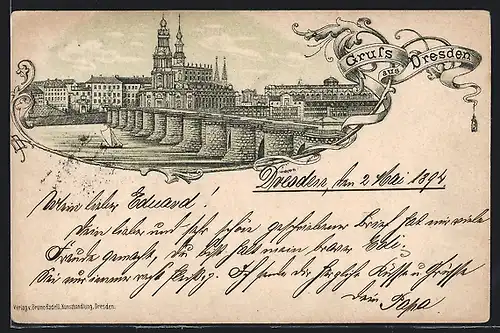 Gruß aus Dresden
Dresden, den 2 Mai 1894
Mein lieber Eduard!
Dein lieber und sehr schön geschriebener Brief hat mir viele
Freude gemacht, du bist halt mein braver Edi.
Sei nur immer recht fleißig. Ich sende dir herzliche Küsse u Grüße
Dein Papa
Verlag v. Bruno Radelli, Kunsthandlung, Dresden.